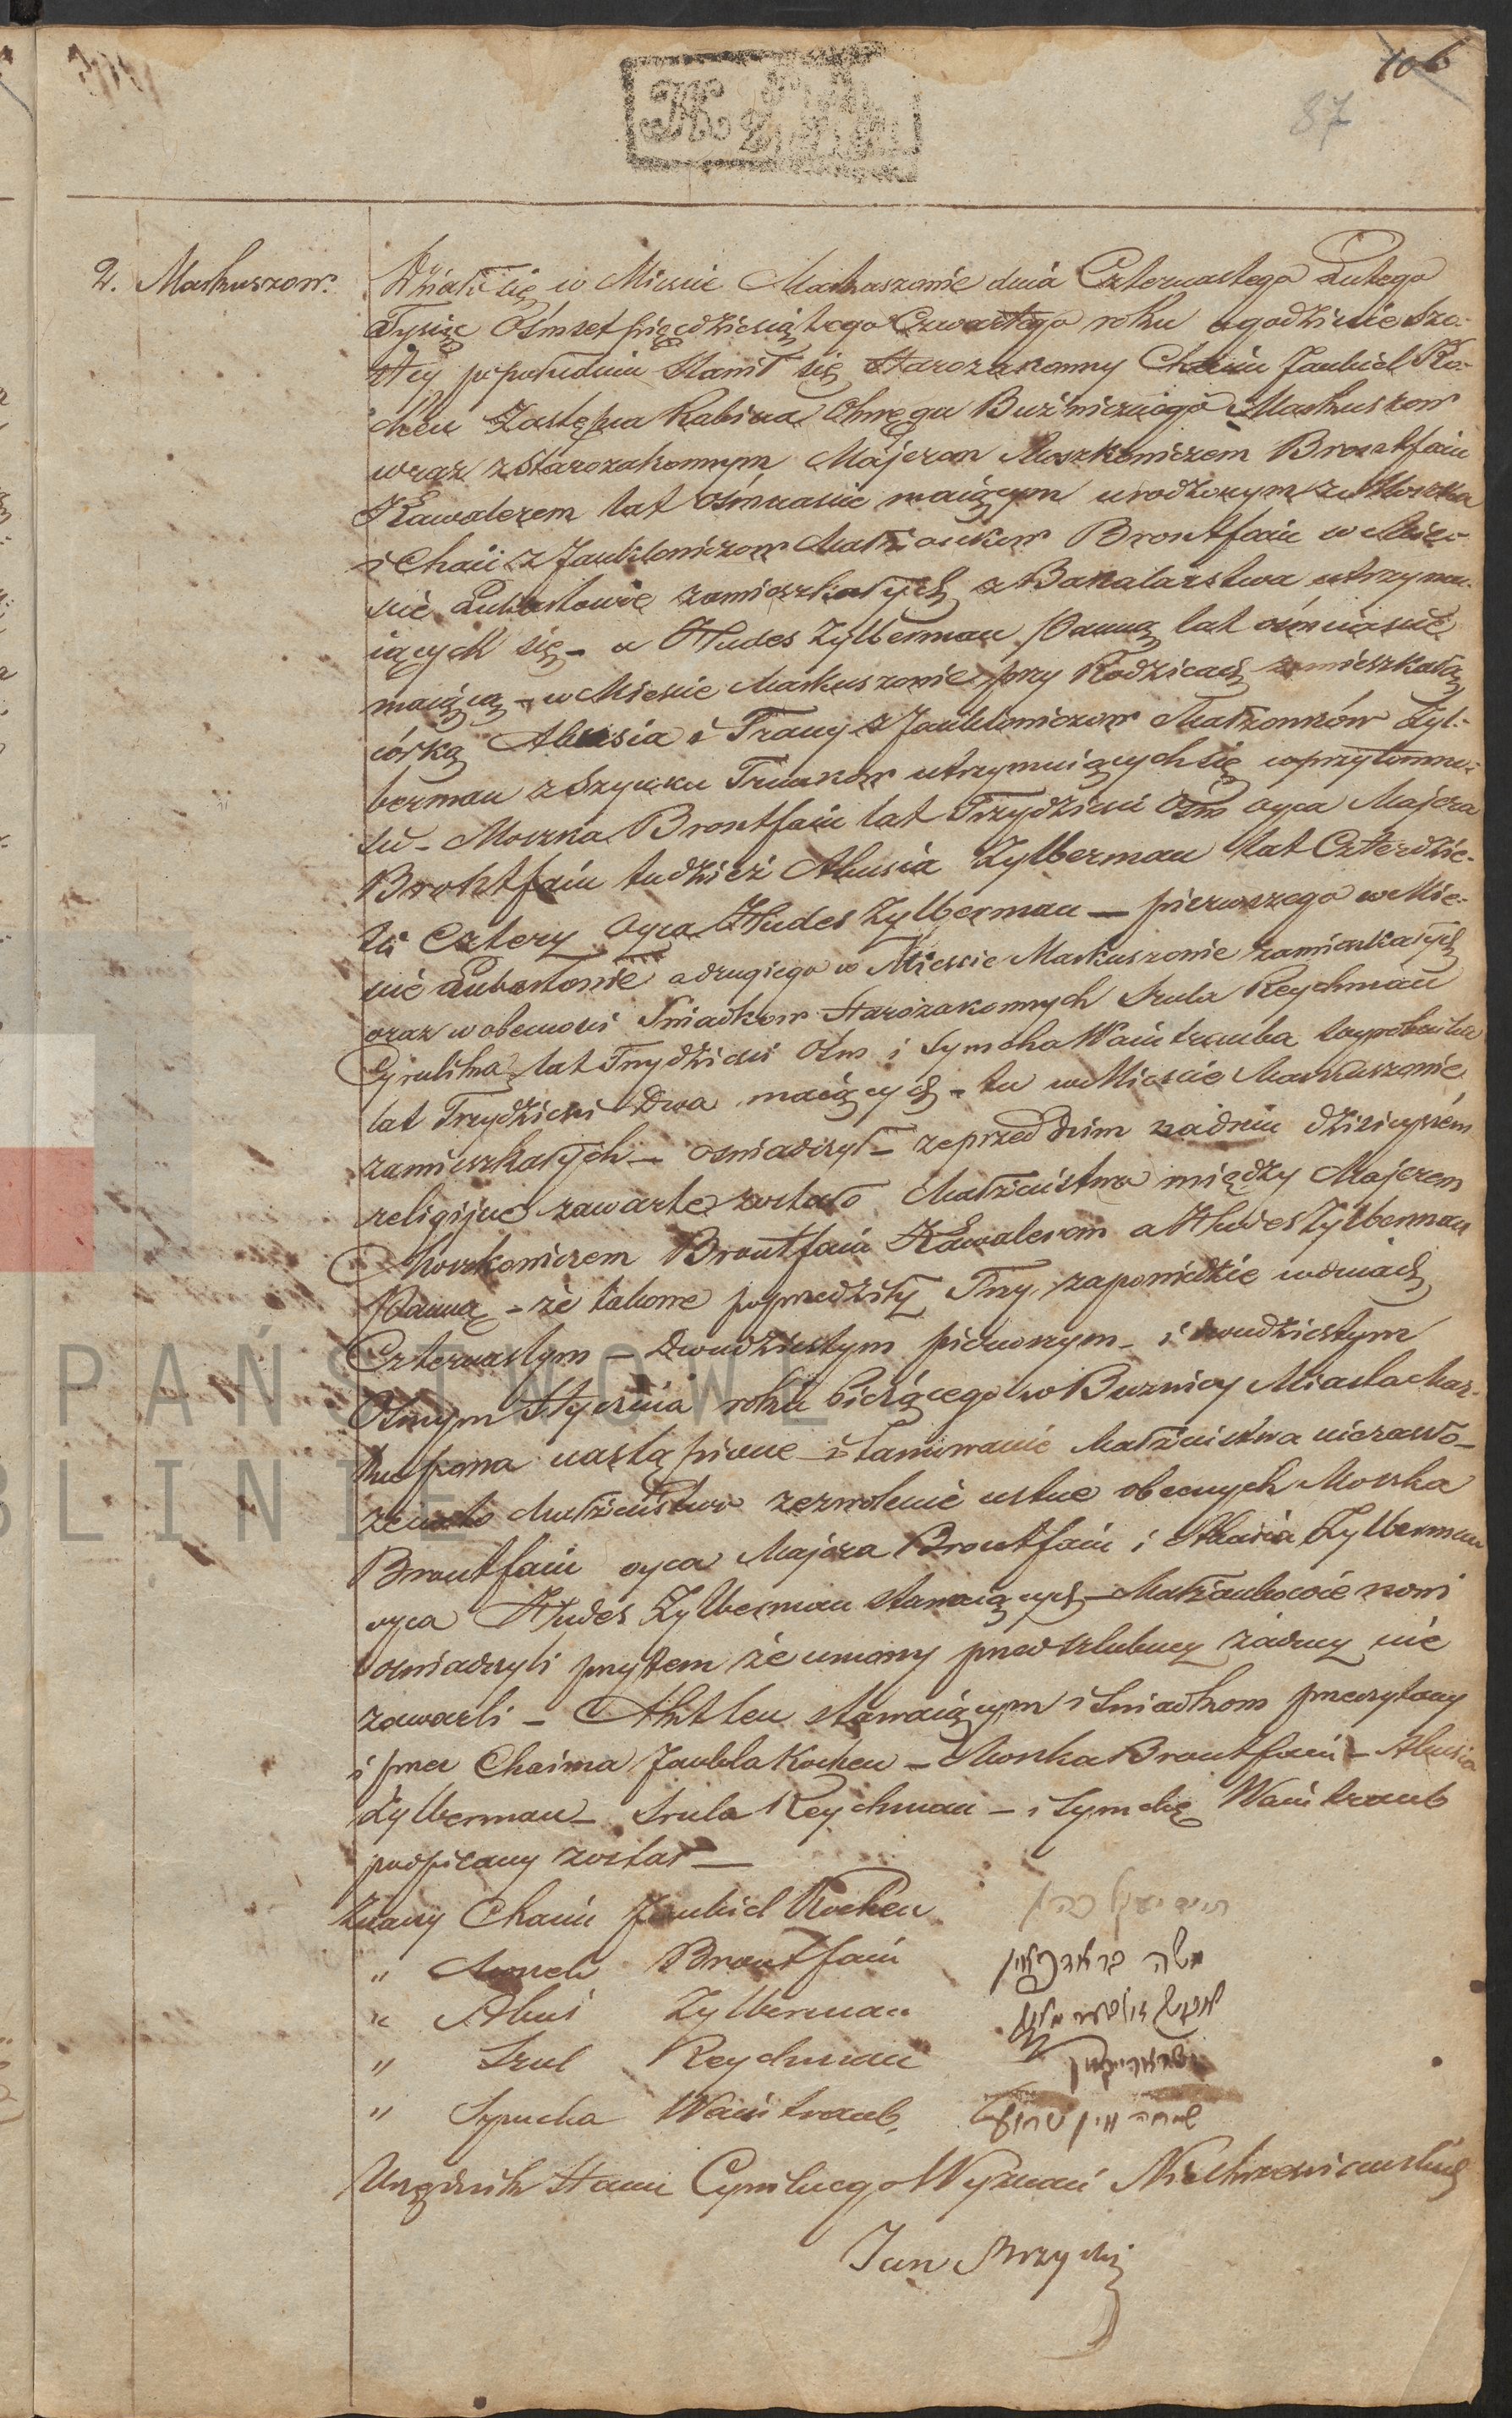 106
87
2. Markuszow.
Działo się w Mieście Markuszowie dnia Czternastego Lutego
Tysiąc Ośmset pięćdziesiątego Czwartego roku o godzinie Szo-
stey popołudniu Stawił się Starozakonny Chaim Jankiel Ko-
chen Zastępca Rabina Okręgu Bużniczego Markuszow
wraz z Starozakonnym Majerem Moszkowiczem Brontfain
Kawalerem lat ośmnaście maiącym urodzonym z Moszka
i Chaii z Jankielowiczow Małżonkow Brontfain w Mieś-
cie Lubartowie zamieszkałych z Bakalarstwa utrzymu-
iących się - a Hudes Zylberman Panną lat ośmnaście
maiącą - w Mieście Markuszowie przy Rodzicach zamieszkałą
córką Abusia i Frany z Jankielowiczow Małżonków Zyl-
berman z Szynku Trunkow utrzymuiących się w przytomno-
ści - Moszka Brontfain lat Trzydzieści Ośm oyca Majera
Brontfain tudzież Abusia Zylberman lat Czterdzie-
ści Cztery Oyca Hudes Zylberman — pierwszego w Mie-
ście Lubartowie a drugiego w Mieście Markuszowie zamieszkałych
oraz w obecności Świadkow Starozakonnych Srula Reychman
Cyrulika lat Trzydzieści Ośm i Symcha Waintrauba
lat Trzydzieści Dwa maiących - tu w Mieście Markuszowie
zamieszkałych — oswiadczył - że przed Nim na dniu dzisieyszém
religijne zawarte zostało Małżeństwo między Majerem
Moszkowiczem Brontfain Kawalerem a Hudes Zylberman
Panną - że takowe poprzedziły Trzy zapowiedzie w dniach
Czternastym — dwudziestym pierwszym - i dwudziestym
Ósmym Stycznia roku bieżącego w Bużnicy Miasta Mar-
kuszowa nastąpione - Tamowanie Małżeństwa niezaszło -
Małżeństwo zezwolenie ustne obecnych Moszka
Brontfain oyca Majera Brontfain i Abusia Zylberman
oyca Hudes Zylberman stawaiących — Małżonkowie nowi
oswiadczyli przytem że umowy przedszlubney żadney nie
zawarli - Akt ten stawaiącym i Świadkom przeczytany
i przez Chaima Jankla Kochen - Moszka Brontfain - Abusia
Zylberman - Srula Reychman - i Symchę Waintraub
podpisany został —
Znany Chaim Jankiel Kochen חיים יעקל כהן
" Moszek Brontfain משה בראנדפיין
" Abuś Zylberman
" Srul Reychman
" Symcha Waintraub שמחה וויינטרויב
Urzędnik Stanu Cywilnego Wyznań Niechrzesciańskich
Jan
PAŃSTWOWE
BLINIE